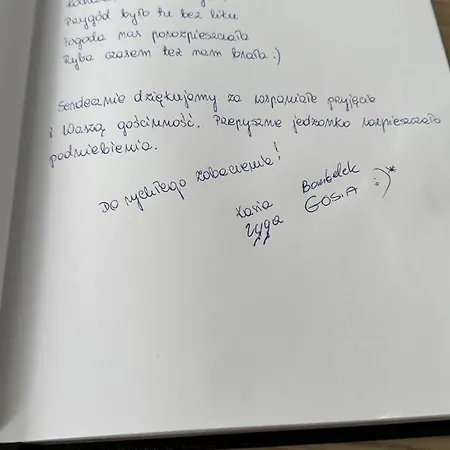 Przygód było tu bez liku
Pogoda nas porozpieszczała
Ryba czasem też nam brała :)
Serdecznie dziękujemy za wspaniałe przyjęcie
i Waszą gościnność. Przepyszne jedzonko rozpieszczało
podniebienia.
Do rychłego zobaczenia!
Kasia Bartełek
Zyga GOSIA :)*